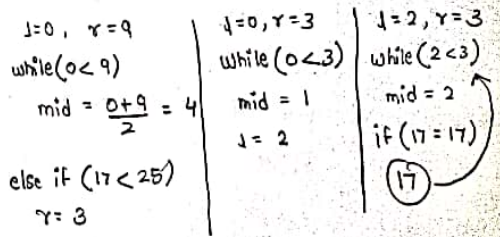 l=0, r=9
while(0<9)
mid = 0+9/2 = 4
else if (17<25)
r = 3
l=0, r=3
while(0<3)
mid = 1
l = 2
l=2, r=3
while(2<3)
mid = 2
if(17=17)
17